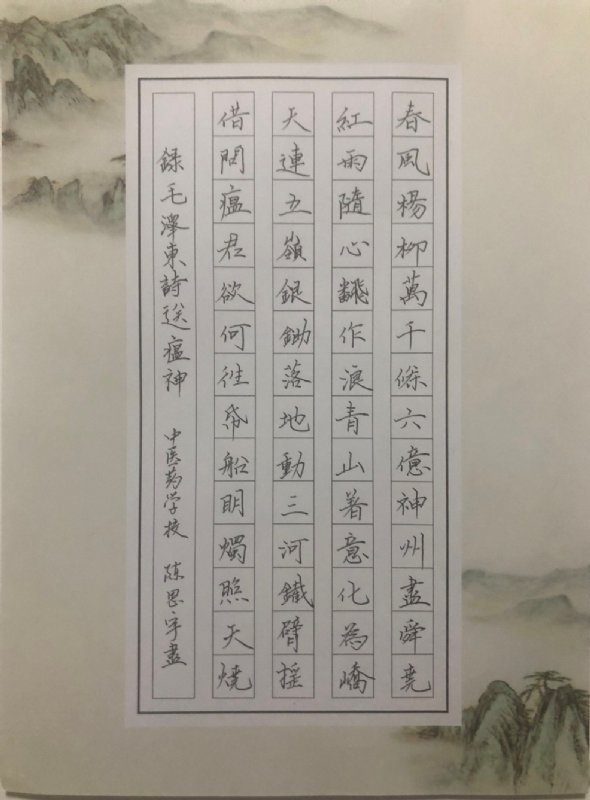 春風楊柳萬千條六億神州盡舜堯
紅雨隨心飜作浪青山着意化為嶠
天連五嶺銀鋤落地動三河鐵臂摇
借問瘟君欲何往帋船明燭照天燒
録毛澤東詩送瘟神 中医药学校 陈思宇書